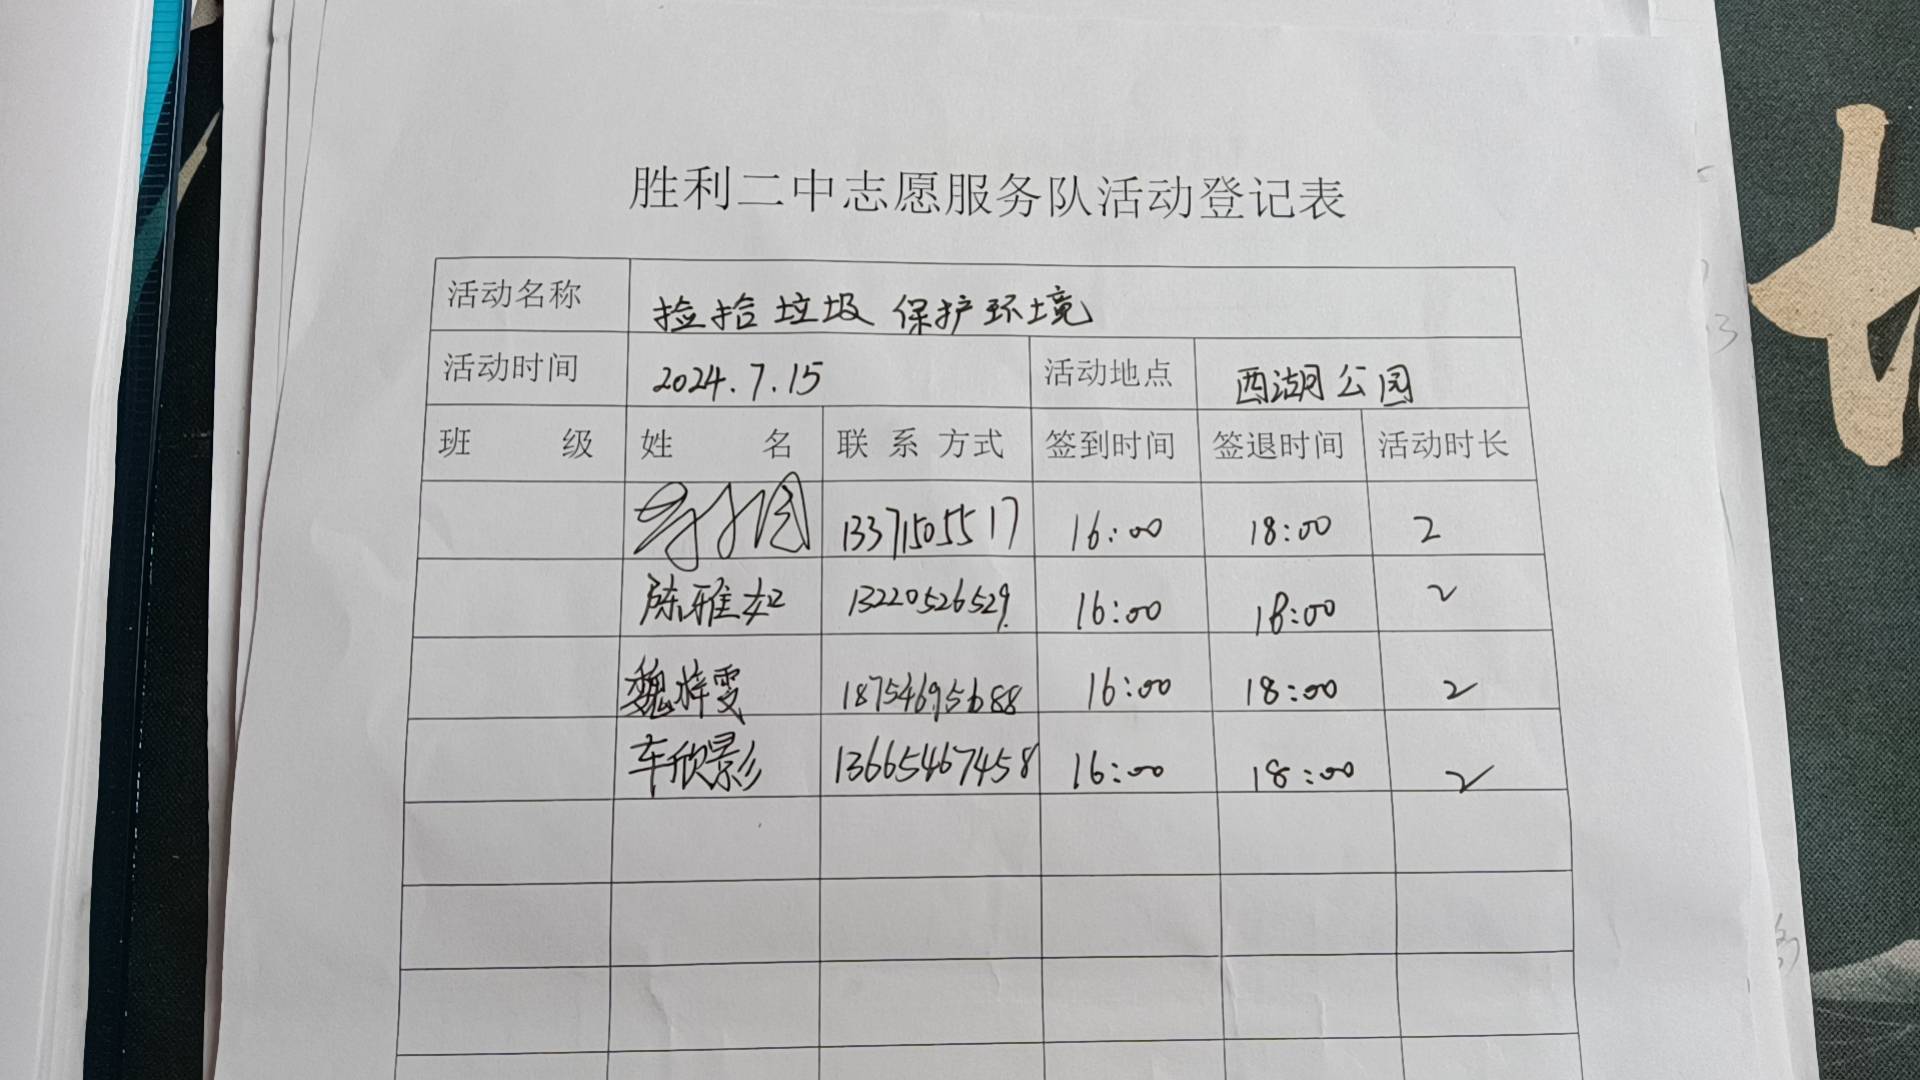 胜利二中志愿服务队活动登记表
活动名称 捡拾垃圾 保护环境
活动时间 2024.7.15 活动地点 西湖公园
班 级 姓 名 联 系 方式 签到时间 签退时间 活动时长
13371505517 16:00 18:00 2
陈雅如 13220526529 16:00 18:00 2
魏梓雯 18754695688 16:00 18:00 2
车欣影 13665467458 16:00 18:00 2